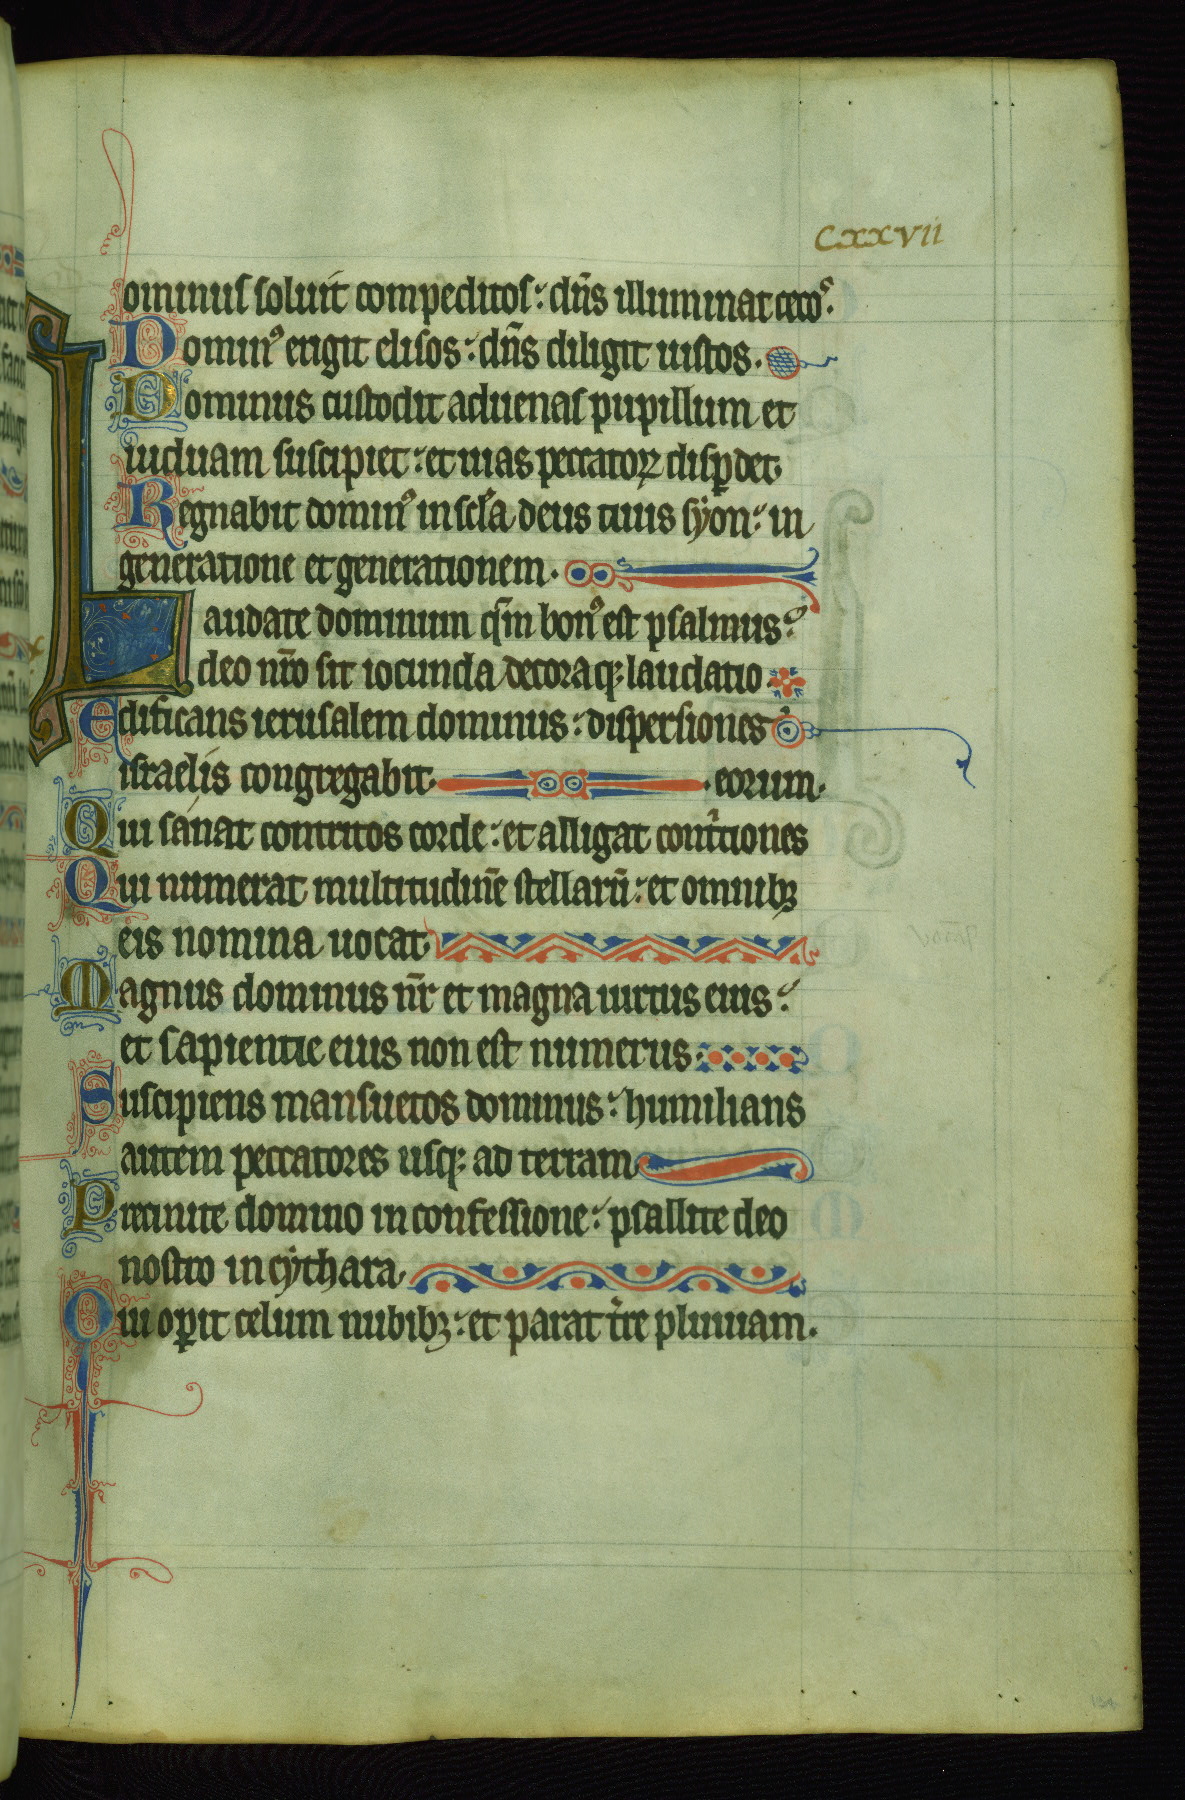 cxxvii
ominus soluit compeditos: dn̄s illuminat cecoꝰ.
Dominꝰ erigit elisos: dn̄s diligit iustos.
Dominus custodit aduenas pupillum et
uiduam suscipiet: et uias peccatoꝝ disꝑdet.
Regnabit dominꝰ in scl̄a deus tuus syon: in
generatione et generationem.
Laudate dominum qm̄ bonꝰ est psalmus:
deo nr̄o sit iocunda decoraqꝫ laudatio.
Edificans ierusalem dominus: dispersiones
israelis congregabit. eorum.
Qui sanat contritos corde: et alligat contⁱtiones
Qui numerat multitudinē stellarū: et omnibꝫ
eis nomina uocat.
Magnus dominus nr̄ et magna uirtus eius:
et sapientie eius non est numerus.
Suscipiens mansuetos dominus: humilians
autem peccatores usqꝫ ad terram
Precinite domino in confessione: psallite deo
nostro in cythara.
Qui oꝑit celum nubibꝫ: et parat t̄re pluuiam.